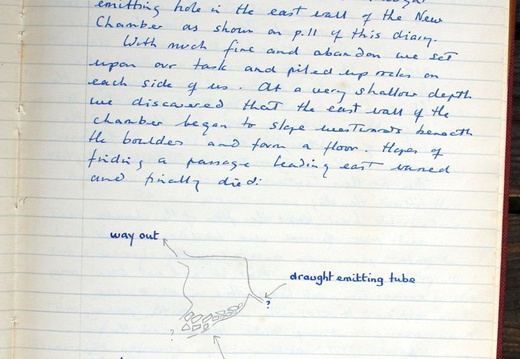 emitting hole in the east wall of the New
Chamber as shown on p.11 of this diary.
With much fire and abandon we set
upon our task and piled up rocks on
each side of us. At a very shallow depth
we discovered that the east wall of the
chamber began to slope westwards beneath
the boulders and form a floor. Hopes of
finding a passage leading east waned
and finally died:
way out
draught emitting tube
?
?